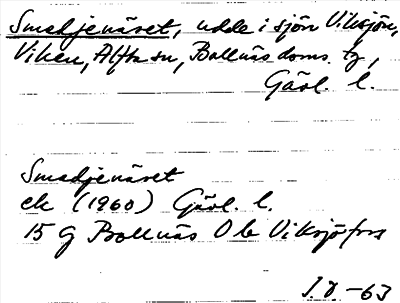 Smedjenäset, udde i sjön Viksjön,
Viken, Alfta sn, Bollnäs doms. tg,
Gävl. l.
Smedjenäset
ek (1960) Gävl. l.
15 G Bollnäs O b Viksjöfors
J.Ö. -63